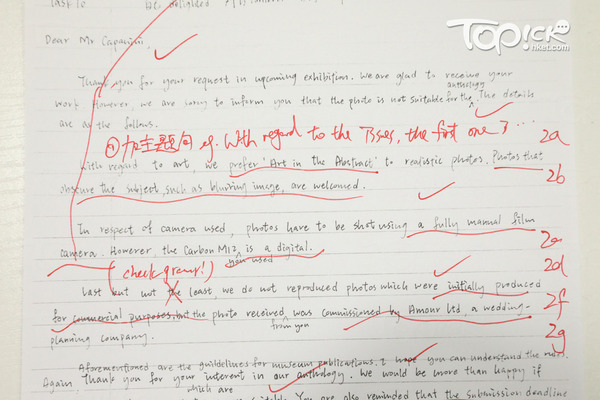 be delighted
TOPICK
hket.com
Dear Mr Capanini,
Thank you for your request in upcoming exhibition. We are glad to receive your
anthology
work. However, we are sorry to inform you that the photo is not suitable for the. The details
are as the follows.
① 加主題句 eg. With regard to the Issues, the first one is ...
2a
With regard to art, we prefer 'Art in the Abstract' to realistic photos. Photos that
2b
obscure the subject, such as blurring image, are welcomed.
In respect of camera used, photos have to be shot using a fully manual film
camera. However, the Carbon M12 is a digital.
you used
(check grammar!)
2d
Last but not the least, we do not reproduced photos which were initially produced
2f
for commercial purposes, but the photo received was commissioned by Amour Ltd, a wedding-
from you
2g
planning company.
Aforementioned are the guildelines for museum publications. I hope you can understand the rules.
Again, Thank you for your interest in our anthology. We would be more than happy if
which are
You are also reminded that the submission deadline